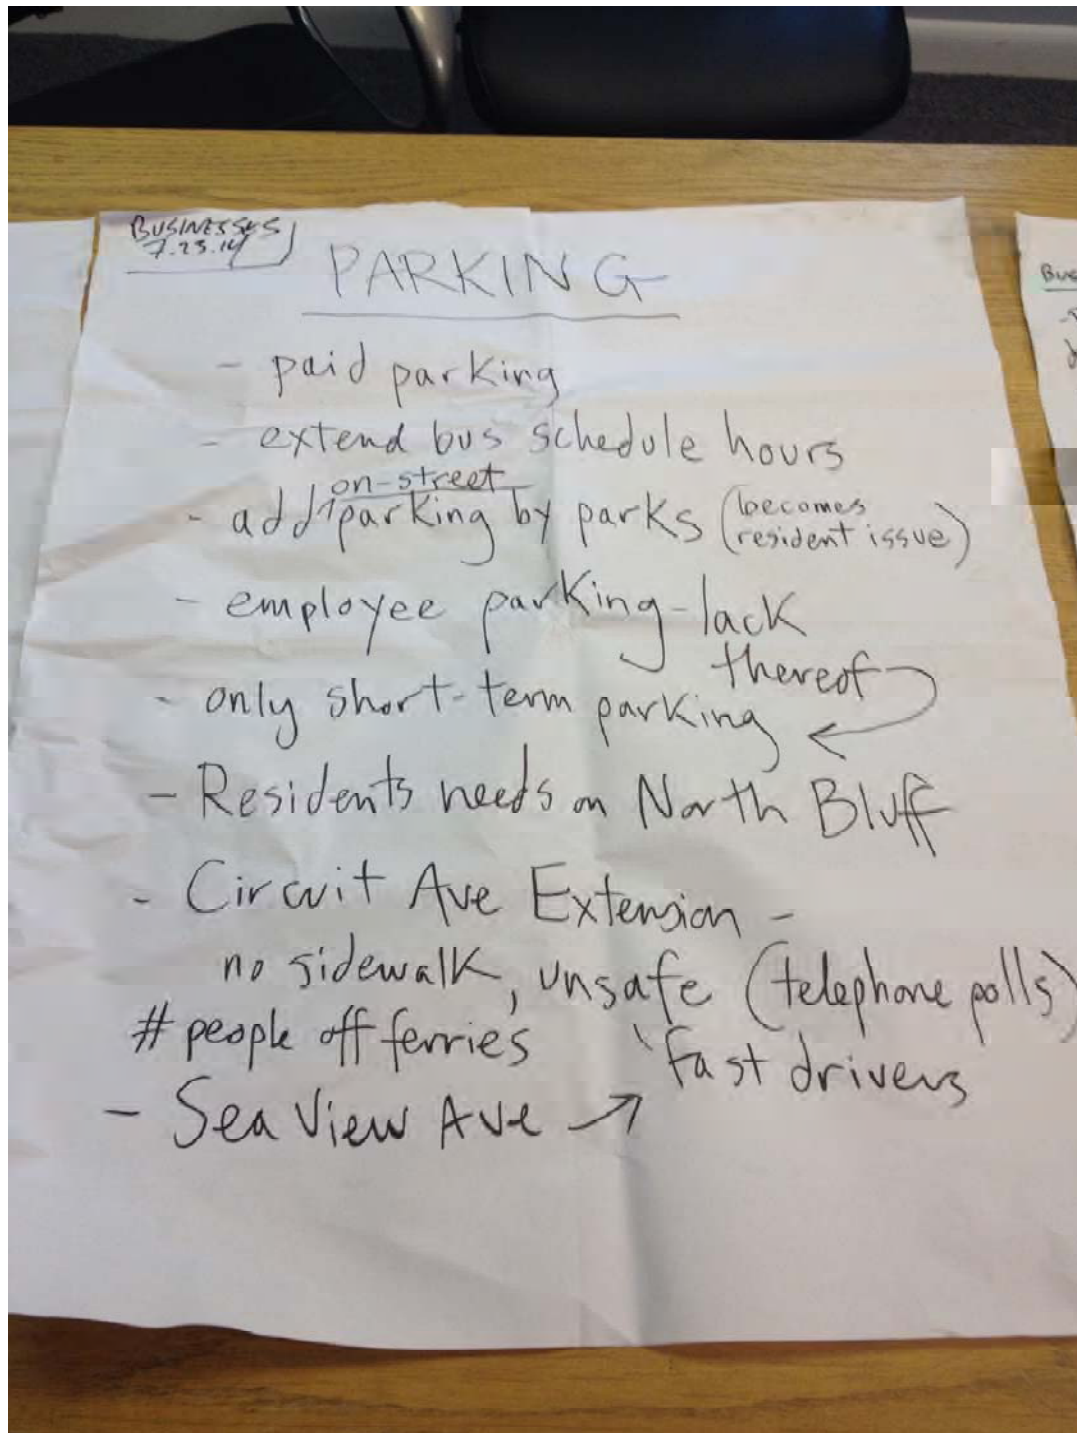 BUSINESSES
7.23.14
PARKING
- paid parking
- extend bus schedule hours
on-street
- add parking by parks (becomes
resident issue)
- employee parking - lack
thereof
- only short-term parking
- Residents needs on North Bluff
- Circuit Ave Extension -
no sidewalk, unsafe (telephone polls)
# people off ferries
fast drivers
- Sea View Ave →
Bus